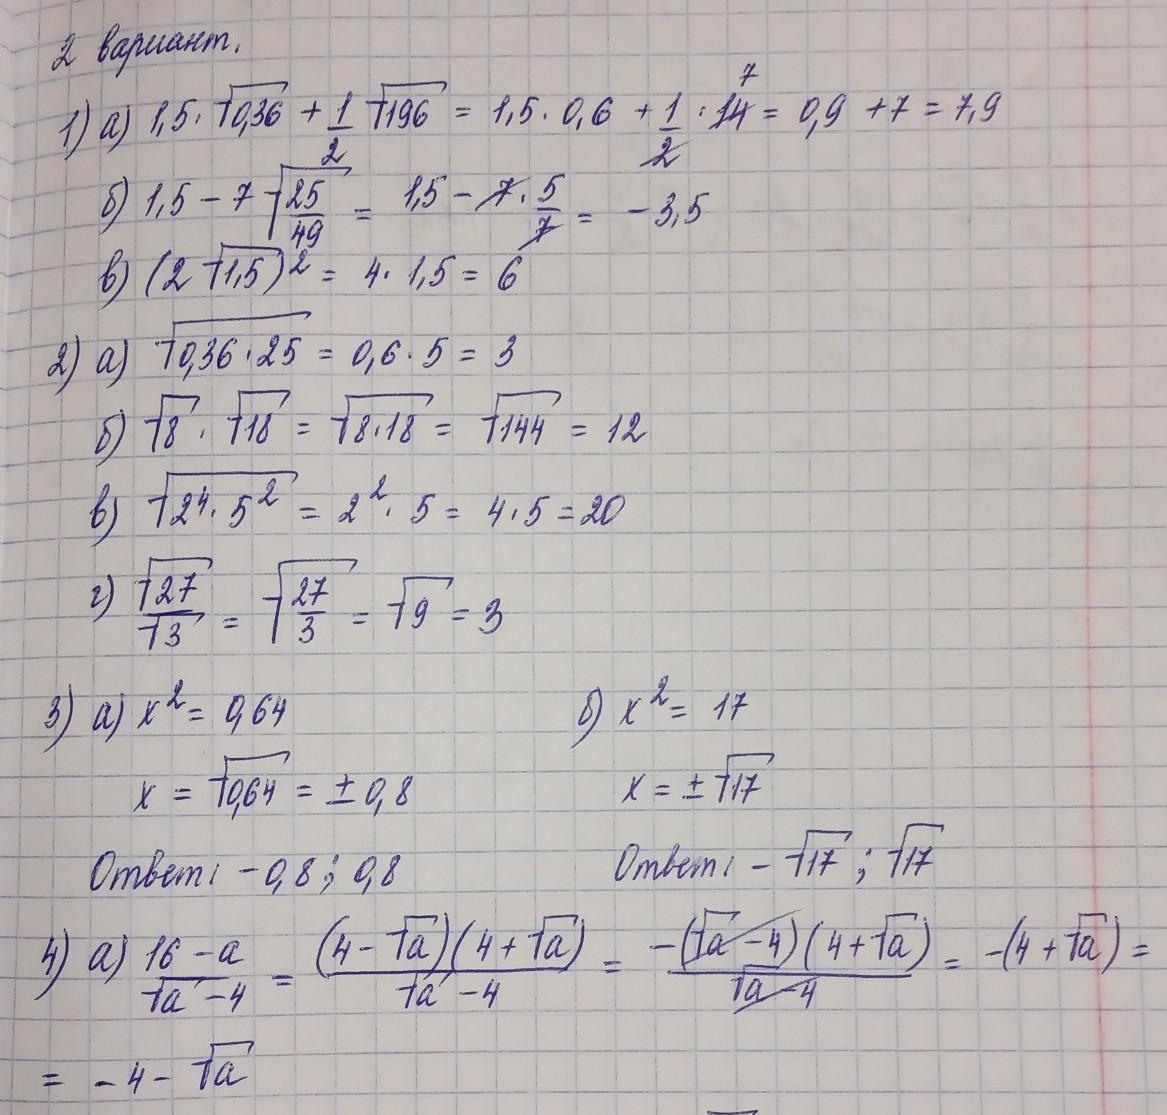 2 вариант.
1) а) 1,5 · √0,36 + 1/2 √196 = 1,5 · 0,6 + 1/2 · 14 7 = 0,9 + 7 = 7,9
б) 1,5 - 7 √25/49 = 1,5 - 7 · 5/7 = -3,5
в) (2 √1,5)² = 4 · 1,5 = 6
2) а) √0,36 · 25 = 0,6 · 5 = 3
б) √8 · √18 = √8·18 = √144 = 12
в) √2⁴ · 5² = 2² · 5 = 4 · 5 = 20
г) √27/√3 = √27/3 = √9 = 3
3) а) x² = 0,64 б) x² = 17
x = √0,64 = ± 0,8 x = ± √17
Ответ: -0,8 ; 0,8 Ответ: -√17 ; √17
4) а) 16 - a/√a - 4 = (4 - √a)(4 + √a)/√a - 4 = -(√a - 4)(4 + √a)/√a - 4 = -(4 + √a) =
= -4 - √a